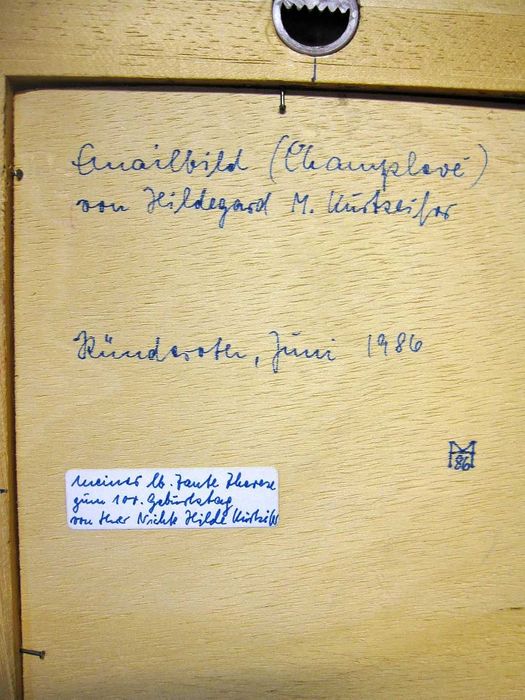 Emailbild (Champlevé)
von Hildegard M. Kurtseifer
Ründeroth, Juni 1986
86
meiner lb. Tante Therese
zum 100. Geburtstag
von Ihrer Nichte Hilde